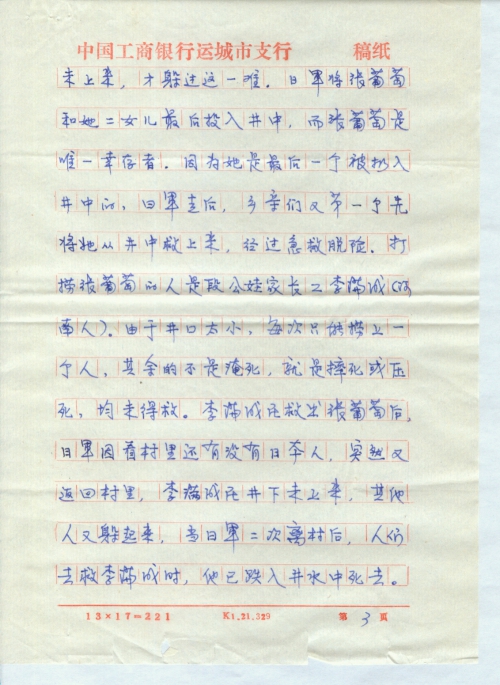 中国工商银行运城市支行 稿纸
未上来，才躲过这一难。日军将张葡萄
和她二女儿最后投入井中，而张葡萄是
唯一幸存者。因为她是最后一个被扔入
井中的，日军走后，乡亲们又第一个先
将她从井中救上来，经过急救脱险。打
捞张葡萄的人是段公娃家长工李满成(河
南人)。由于井口太小，每次只能捞上一
个人，其余的不是淹死，就是摔死或压
死，均未得救。李满成在救出张葡萄后，
日军因看村里还有没有日本人，突然又
返回村里，李满成在井下未上来，其他
人又躲起来，当日军二次离村后，人们
去救李满成时，他已跌入井水中死去。
13×17=221 K1.21.329 第 3 页